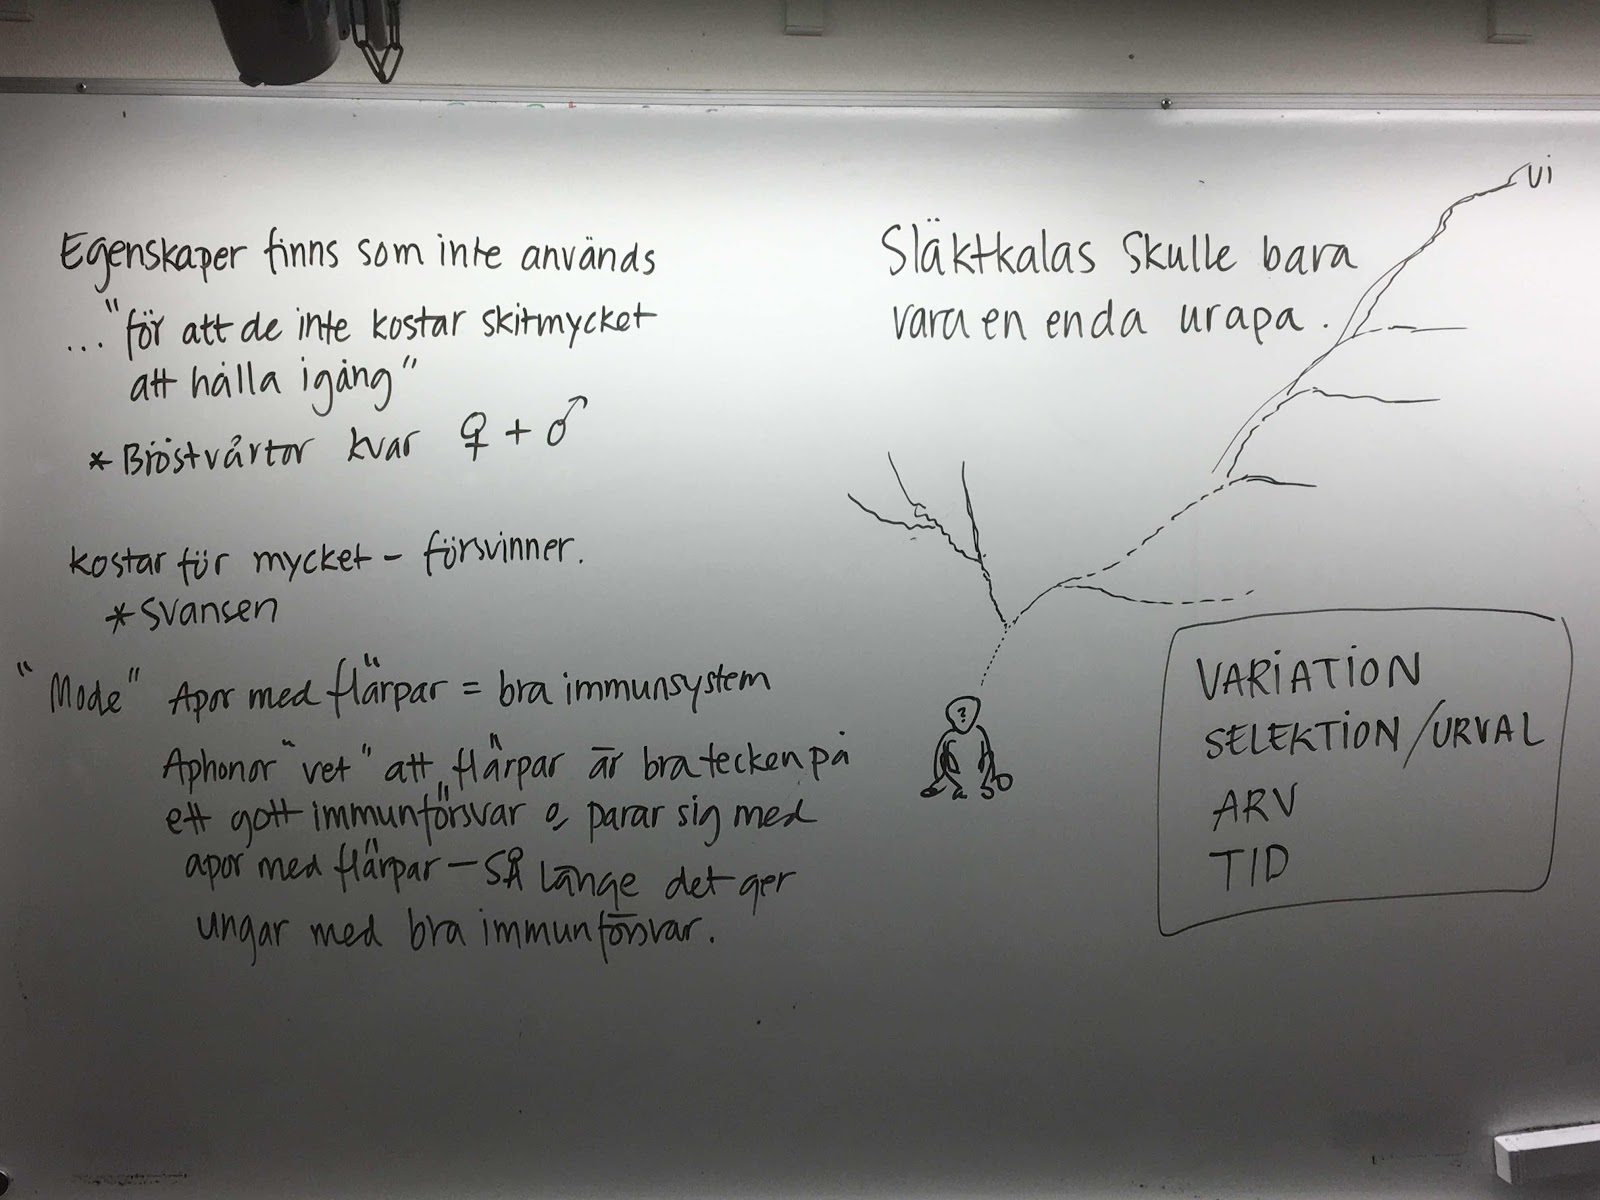 Egenskaper finns som inte används
... "för att de inte kostar skitmycket
att hålla igång"
* Bröstvårtor kvar ♀ + ♂
kostar för mycket - försvinner.
* Svansen
"Mode" Apor med flärpar = bra immunsystem
Aphonor "vet" att flärpar är bra tecken på
ett gott immunförsvar o, parar sig med
apor med flärpar - SÅ länge det ger
ungar med bra immunförsvar.
Släktkalas skulle bara
vara en enda urapa.
vi
?
VARIATION
SELEKTION/URVAL
ARV
TID